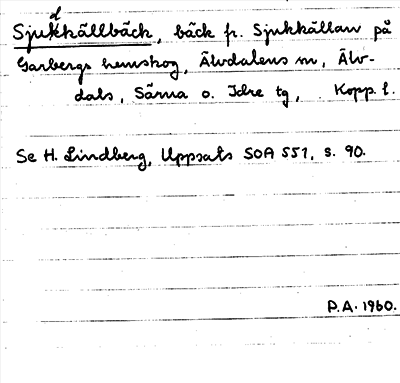 Sjukkällbäck, bäck fr. Sjukkällan på
Garbergs hemskog, Älvdalens sn, Älv-
dals, Särna o. Idre tg, Kopp. l.
Se H. Lindberg, Uppsats SOA 551, s. 90.
P.A. 1960.